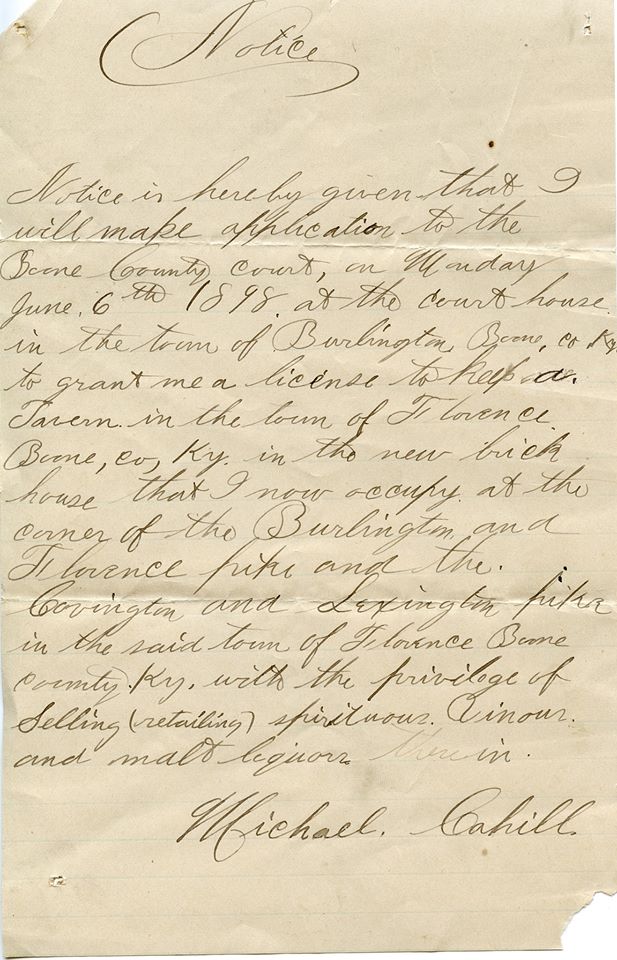 Notice
Notice is hereby given that I
will make application to the
Boone County court, on Monday
June. 6th 1898. at the court house.
in the town of Burlington, Boone, co. Ky.
to grant me a license to keep a.
Tavern. in the town of Florence.
Boone, co, Ky. in the new brick
house that I now occupy. at the
corner of the Burlington, and
Florence pike and the.
Covington and Lexington pike
in the said town of Florence Boone
county. Ky. with the privilege of
Selling (retailing) spirituous. Vinous.
and malt liquors therein.
Michael. Cahill.